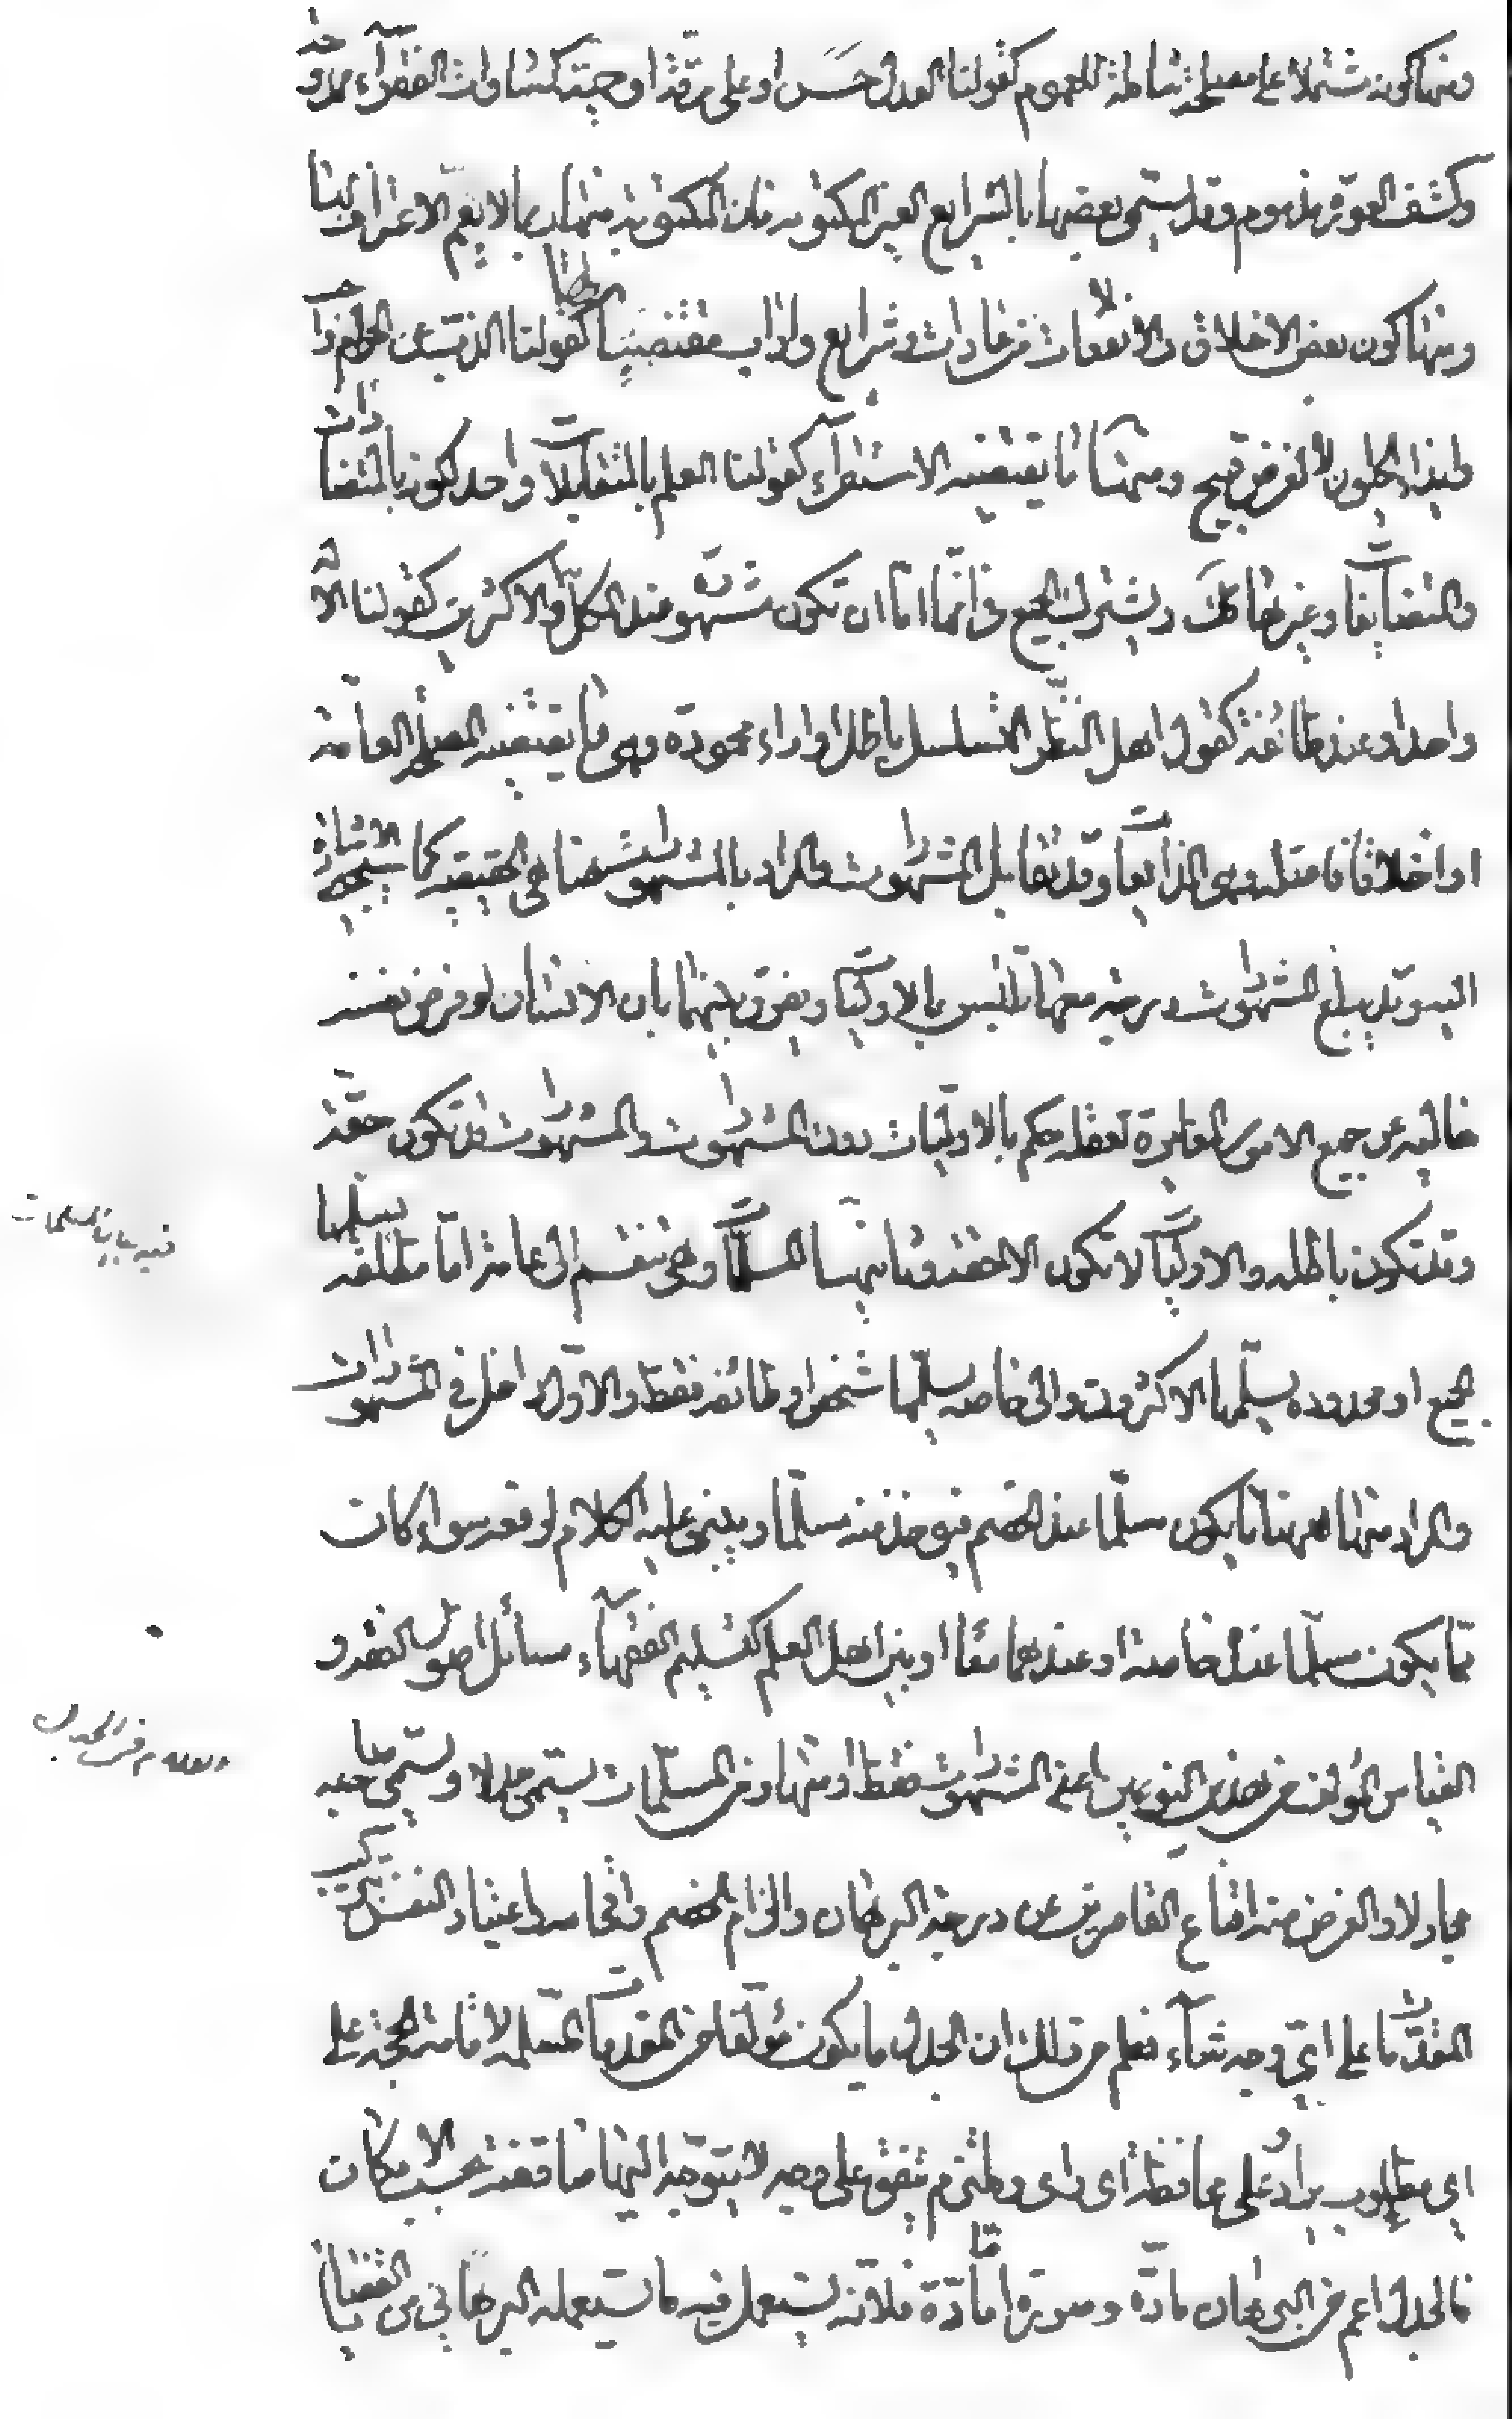 ومنها كونه مشتملا على مصلحة شاملة للعموم كقولنا العدل حسن او على رقة او حمية كمساوات الفقراء محمدوحة
وكشف العورة مذموم وقد يسمى بعضها بالشرايع الغير المكتوبه فان المكتوبة منها ربما لا يعم الاعتراف بها
ومنها كون بعض الاخلاق والانفعالات من عادات وشرايع واداب مقتضيا لها كقولنا الذب عن الحرم واجب
وايذاء الحيوان لا لغرض قبيح ومنها ما يقتضيه الاستقراء كقولنا العلم بالمتقابلات واحد لكونه بالمتضادات
والمتضايفات وغيرها كك ويشترك الجميع في انها اما ان تكون مشهورة عند الكل والاكثرين كقولنا الاله
واحد او عند طائفة كقول اهل النظر التسلسل باطل او اراء محمودة وهي ما يقتضيه المصلحة العامة
او اخلاقا فاضلة وهي الذايعات وقد تقابل المشهورات والمراد بالمشهورات هنا هي الحقيقية كما سيجيء الاشارة
اليه وقد يبلغ المشهورات درجة معها تلتبس بالاوليات ويفرق بينهما بان الانسان لو فرض نفسه
خالية عن جميع الامور المغايرة لعقله حكم بالاوليات دون المشهورات والمشهورات قد تكون حقة
وقد تكون باطلة والاوليات لا تكون الا حقة وثانيهما المسلمات وهي تنقسم الى عامة اما مطلقة يسلمها
الجميع او محدودة يسلمها الاكثرون والى خاصة يسلمها شخص او طائفة فقط والاول داخل في المشهورات
والمراد منها ههنا ما يكون مسلما عند الخصم فيؤخذ منه مسلما ويبنى عليه الكلام لدفعه سواء كان
مما يكون مسلما عنده خاصة او عندهما معا او بين اهل العلم كتسليم الفقهاء مسائل اصول الفقه و
القياس المؤلف من هذين النوعين اعني المشهورات فقط او منها ومن المسلمات يسمى جدلا ويسمى صاحبه
مجادلا والغرض منه اقناع القاصرين عن درجة البرهان والزام الخصم وافحامه واعتياد النفس بتركيب
المقدمات على اي وجه شاء فعلم من ذلك ان الجدل ما يكون مؤلفا من المقدمات المسلمة لاقامة الحجة على
اي مطلوب يراد وعلى محافظة اي راى وملتزم يتفق على وجه لا يتوجه اليها مناقضة بحسب الامكان
فالجدل اعم من البرهان مادة وصورة اما مادة فلانه يستعمل فيه ما يستعمله البرهاني من القضايا
فيه بيان المسلمات